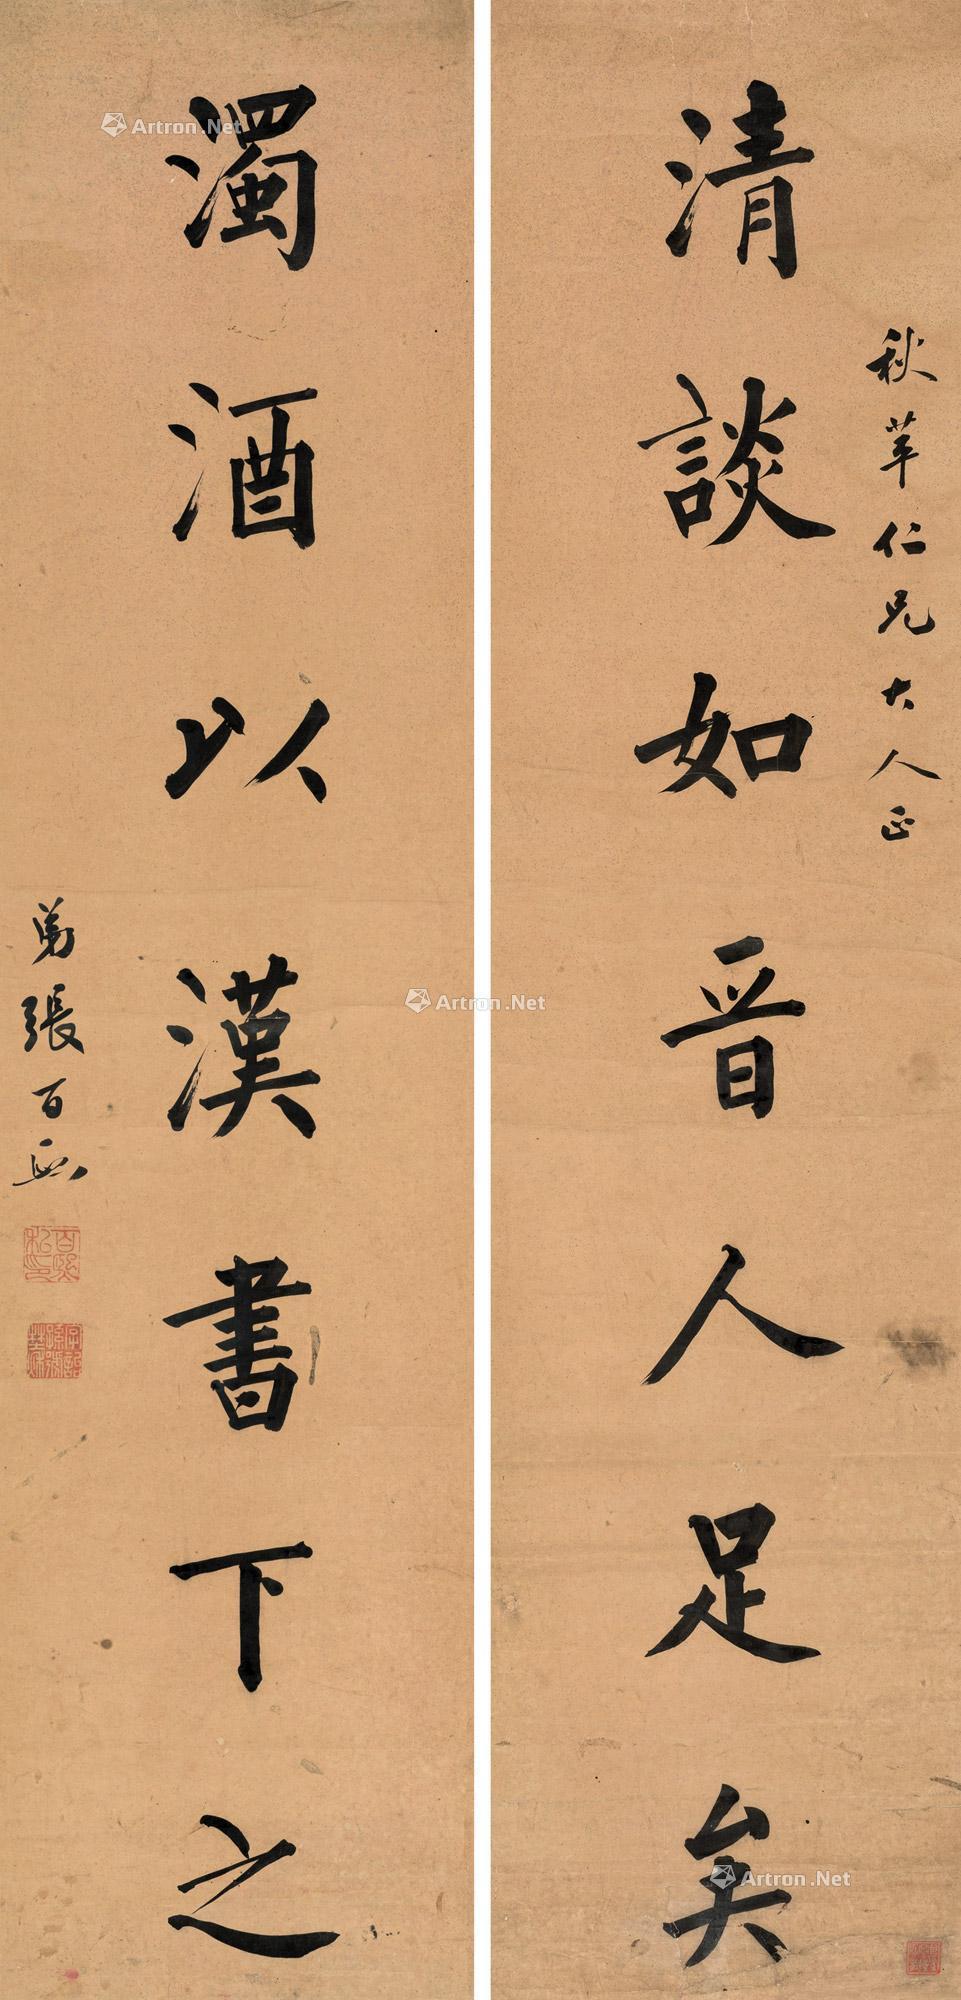 清談如晋人足矣
秋苹仁兄大人正
濁酒以漢書下之
弟張百熙
百熙私印
Artron.Net
Artron.Net
Artron.Net